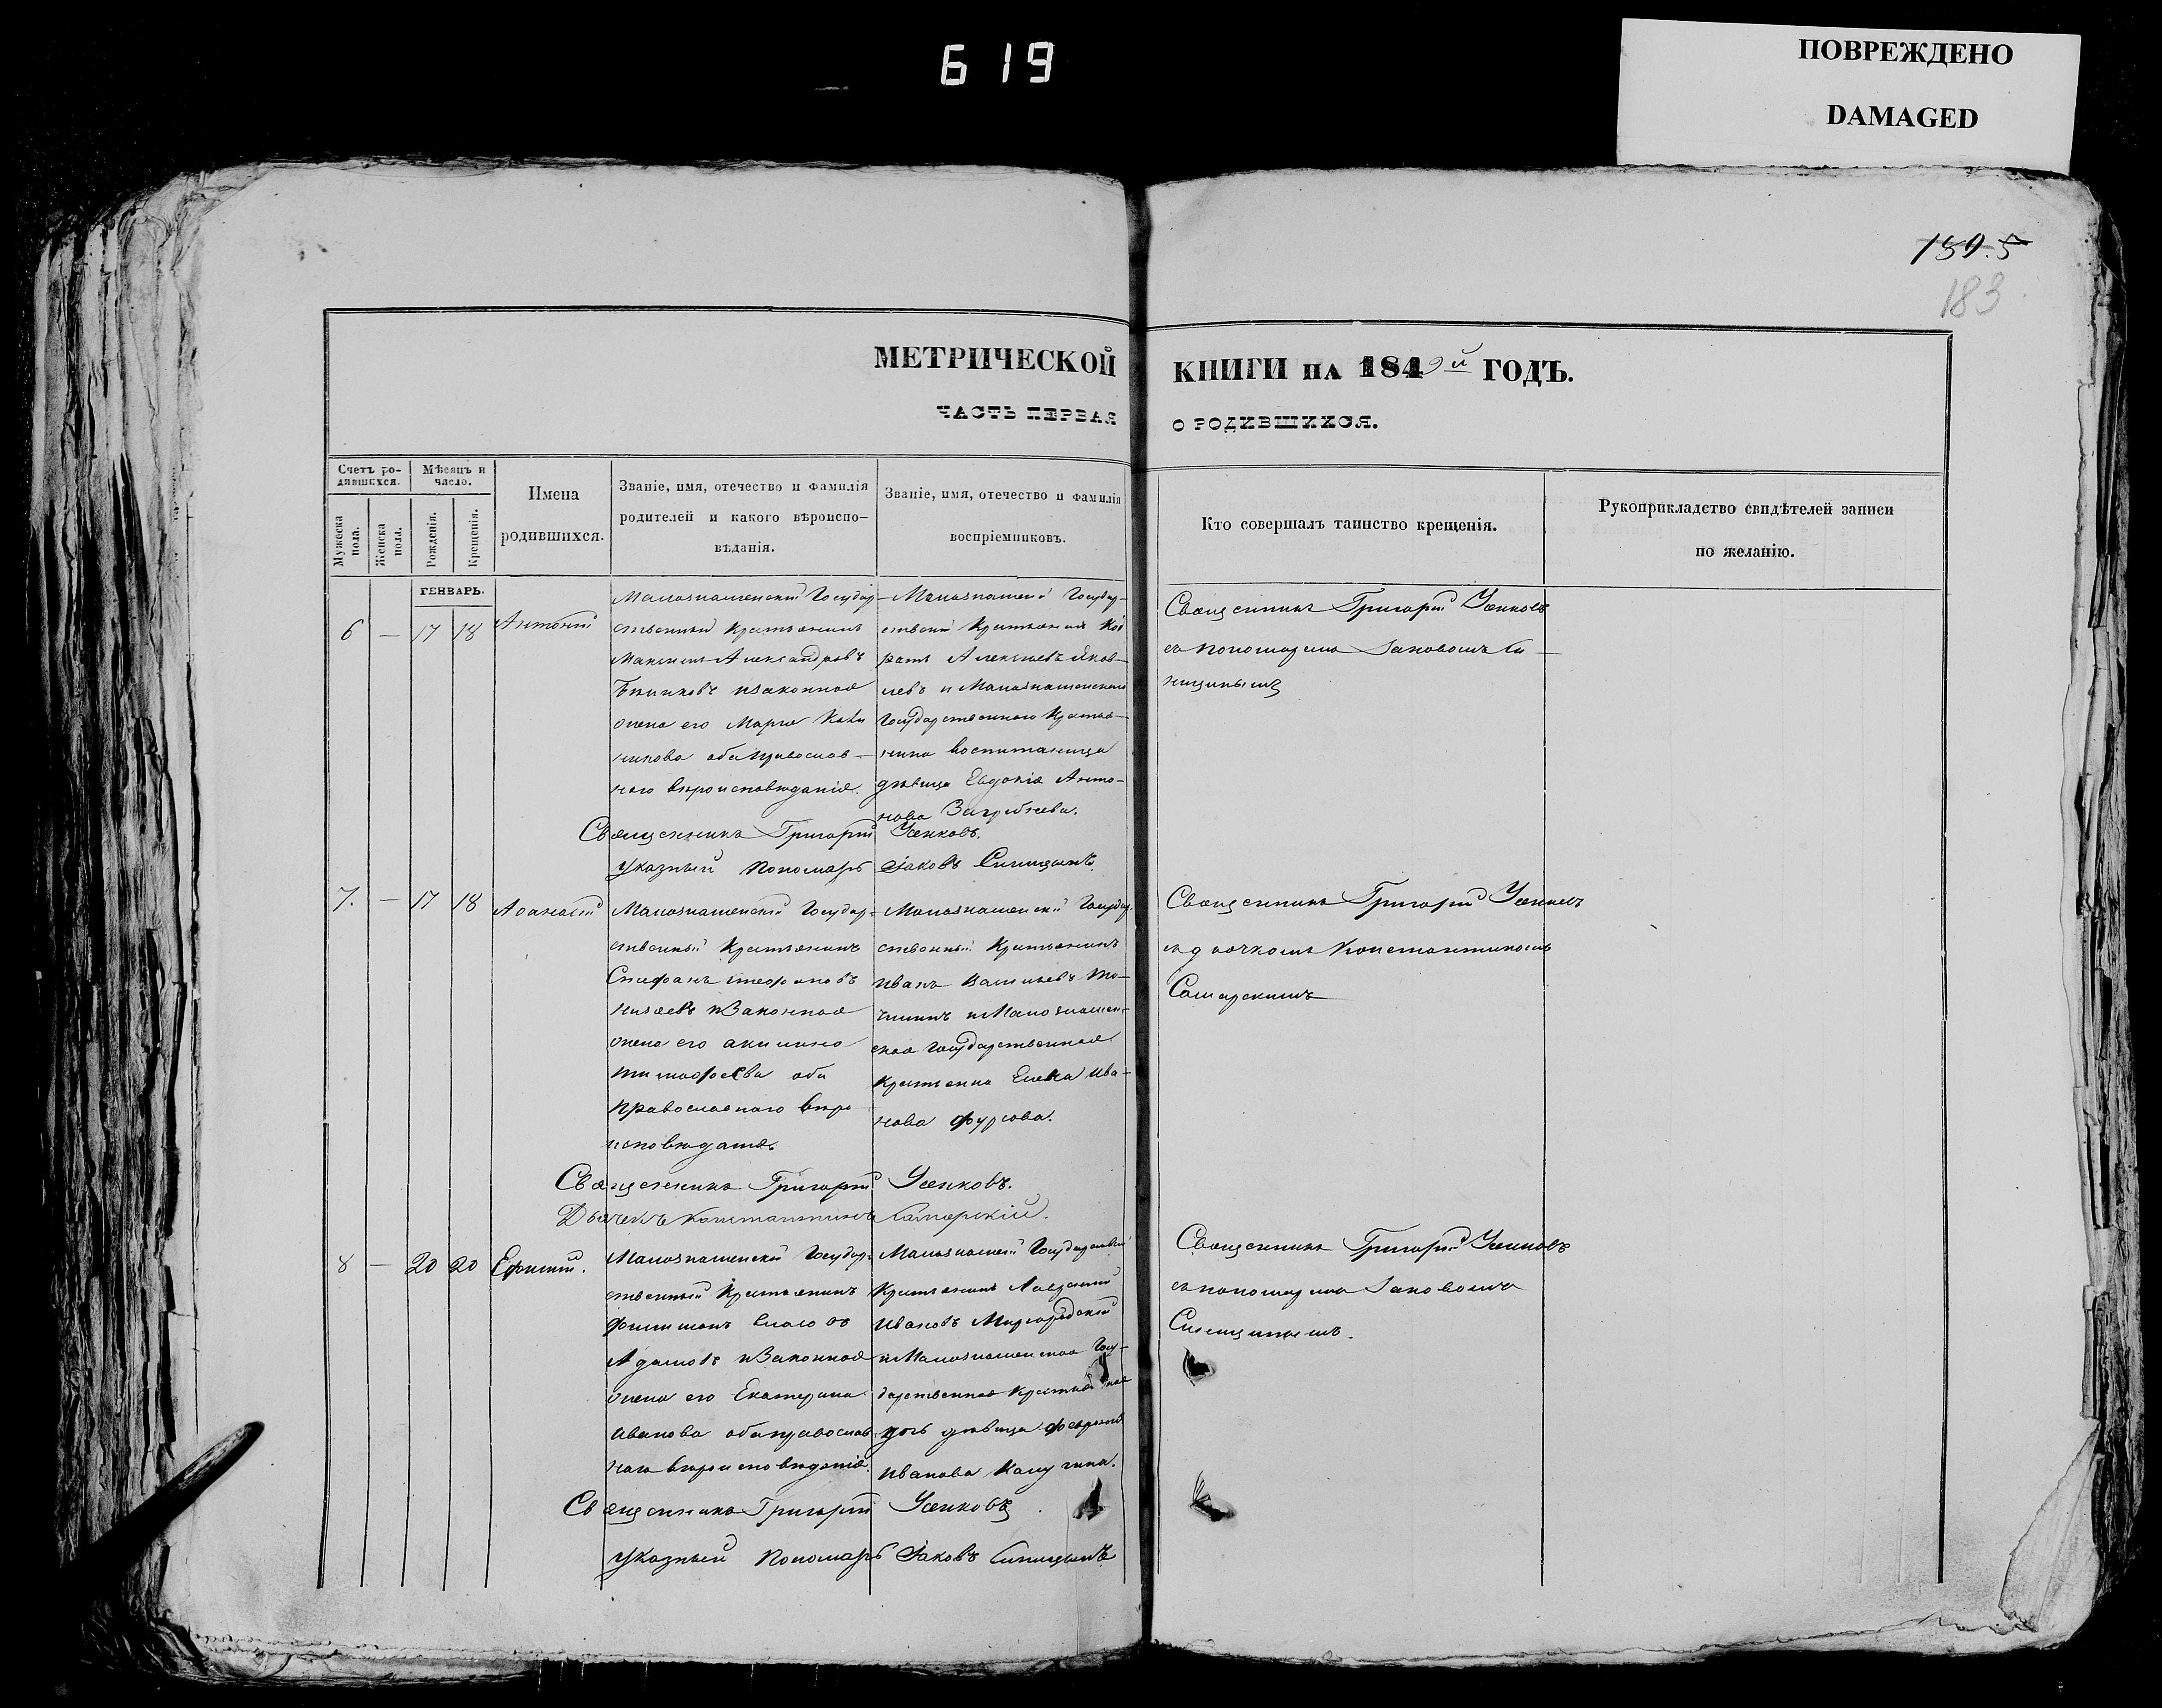 619
ПОВРЕЖДЕНО
DAMAGED
189.5
183
МЕТРИЧЕСКОЙ КНИГИ НА 1849й ГОДЪ.
ЧАСТЬ ПЕРВАЯ О РОДИВШИХСЯ.
Счетъ ро-
дившихся.
Мужеска пола.
Женска пола.
Мѣсяцъ и
число.
Рожденія.
Крещенія.
Имена
родившихся.
Званіе, имя, отечество и фамилія
родителей и какого вѣроиспо-
вѣданія.
Званіе, имя, отечество и фамилія
воспріемниковъ.
Кто совершалъ таинство крещенія.
Рукоприкладство свидѣтелей записи
по желанію.
ГЕНВАРЬ.
6 — 17 18 Антоній
Малознаменскій Государ
ственный Крестьянинъ
Максимъ Александровъ
изаконная
жена его Марѳа
обаправослав-
наго вѣроисповѣданія.
Малознаменс. Государ-
ственый Крестьянинъ
Алексѣевъ Яков-
левъ и Малознаменскаго
Государственнаго Крестья-
нина воспитаница
дѣвица Евдокія Анто-
нова
Священникъ Григорій Усенковъ.
Указный Пономарь Іаковъ Синицынъ.
Священникъ Григорій Усенковъ
съ пономаремъ Іаковомъ Си-
ницынымъ
7. — 17 18 Аѳанасій
Малознаменскій Государ-
ственный Крестьянинъ
Стефанъ Стефановъ
изаконная
жена его акилина
тимофеева оба
православнаго вѣро
исповѣданія.
Малознаменскій Государ-
ственный Крестьянинъ
Иванъ
и Малознамен-
ская Государственная
Крестьянка Елена Ива-
нова фурсова.
Священникъ Григорій Усенковъ.
Дьячекъ Константинъ Самарскій.
Священникъ Григорій Усенковъ
съ дьячкомъ Константиномъ
Самарскимъ
8 — 20 20 Ефимій.
Малознаменскій Государ-
ственный Крестьянинъ
филимонъ
Адамовъ изаконная
жена его Екатерина
иванова обаправослав-
наго вѣроисповѣданія.
Малознамен. Государствен.
Крестьянинъ Лаврентій
Ивановъ Миргородскій
и Малознаменская Госу-
дарственная
дочь дѣвица февронія
иванова
Священникъ Григорій Усенковъ
Указный Пономарь Іаковъ Синицынъ
Священникъ Григорій Усенковъ
съ пономаремъ Іаковомъ
Синицинымъ.